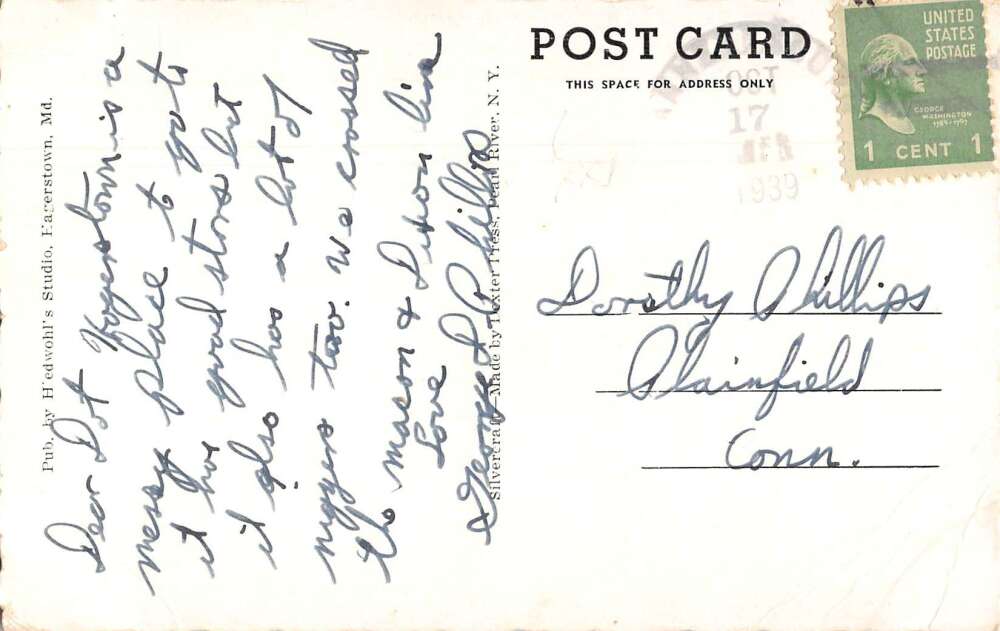 POST CARD
THIS SPACE FOR ADDRESS ONLY
UNITED
STATES
POSTAGE
GEORGE
WASHINGTON
1 CENT 1
OCT
17
1939
Pub. by H'edwohl's Studio, Hagerstown, Md.
Dear Dot Hagerstown is a
messy place to get to
it has good stores but
it also has a lot of
niggers too. We crossed
the Mason & Dixon line
Love
George Phillips
Silvercraft—Made by Dexter Press, Pearl River, N. Y.
Dorothy Phillips
Plainfield
Conn.